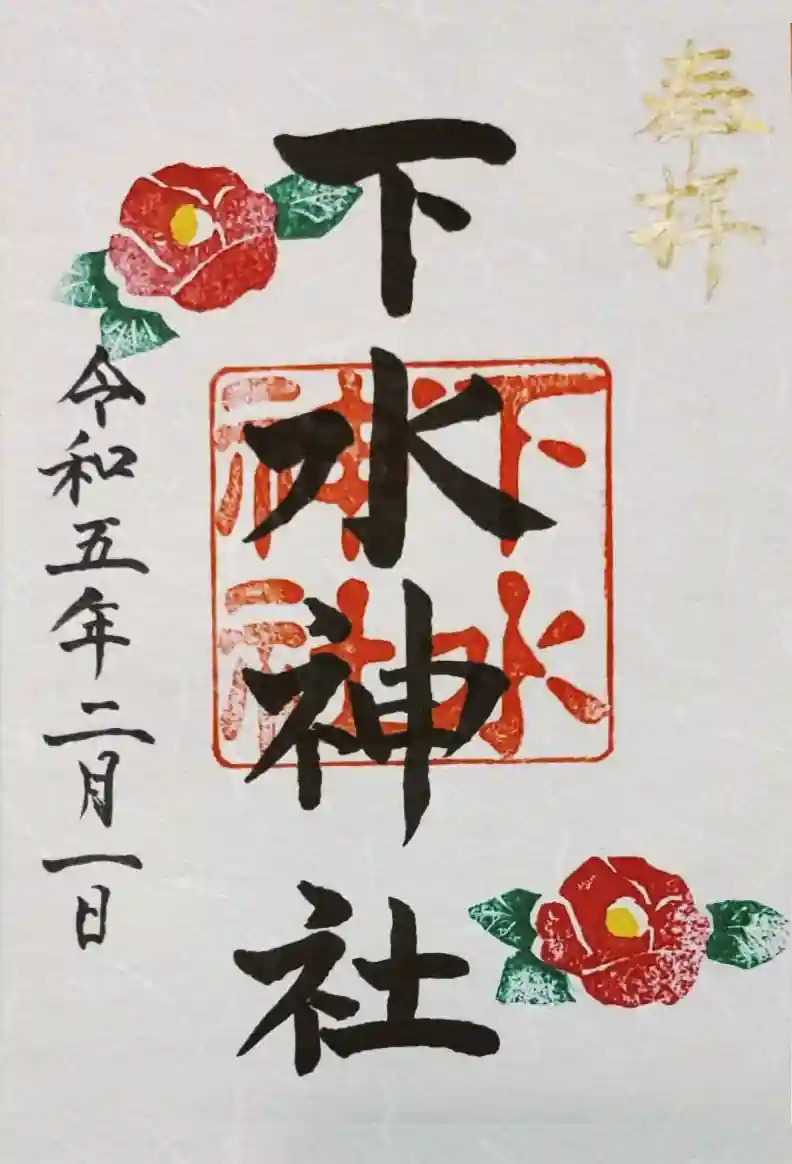 奉拝
下水神社
下水
神社
令和五年二月一日